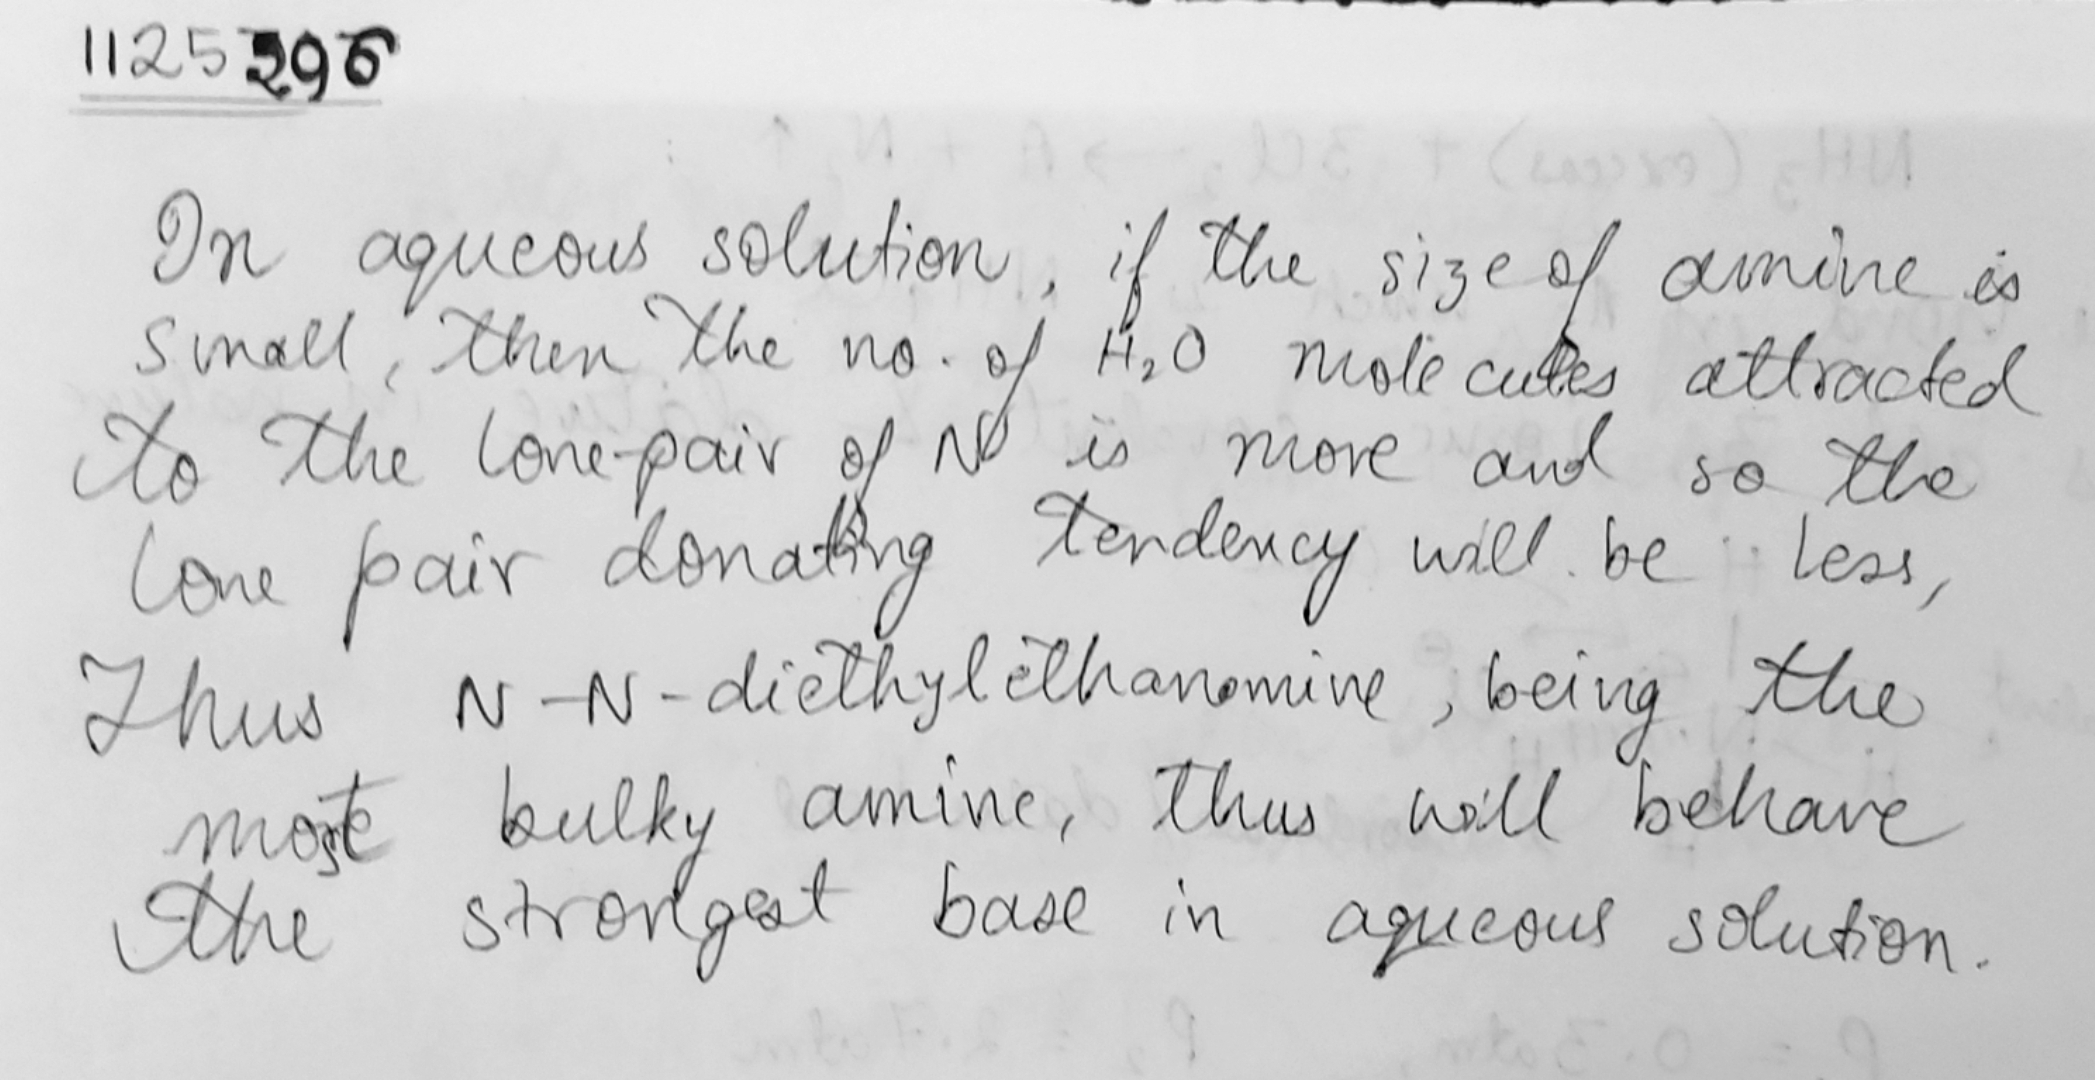 1125296
In aqueous solution, if the size of amine is
small, then the no. of H₂O molecules attracted
to the lone-pair of N is more and so the
lone pair donating tendency will be less,
Thus N-N-diethylethanamine, being the
most bulky amine, thus will behave
the strongest base in aqueous solution.